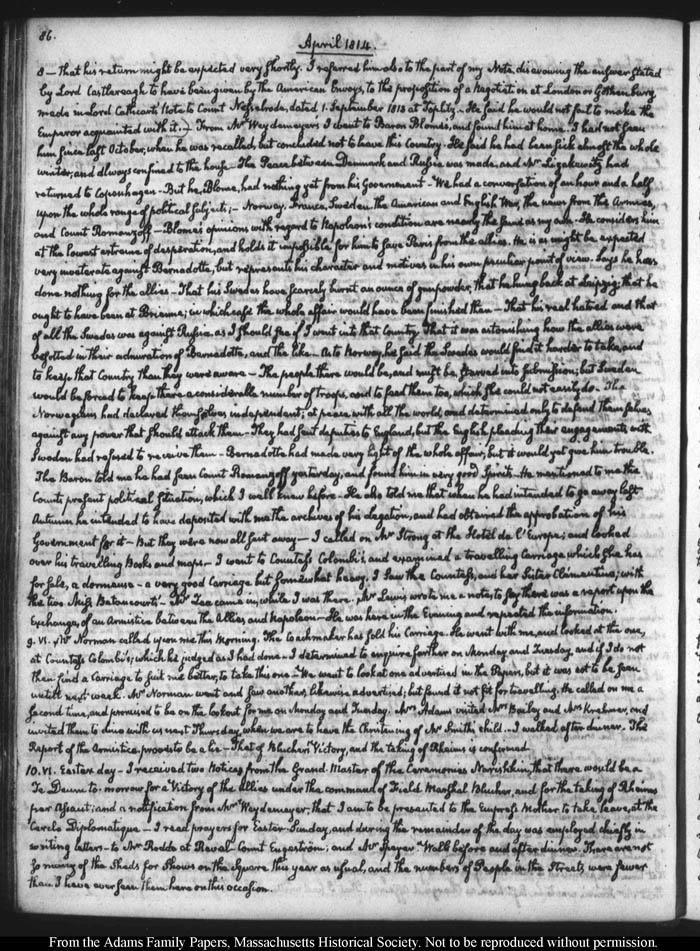 86.
April 1814.
8 — That his return might be expected very shortly. I referred him also to the part of my Note, disavowing the answer stated
by Lord Castlereagh to have been given by the American Envoys, to the proposition of a Negotiation at London or Gothenburg,
made in Lord Cathcart's Note to Count Nesselrode, dated 1. September 1813 at Toplitz. He said he would not fail to make the
Emperor acquainted with it. — From Mr Weydemeyer's I went to Baron Blome's, and found him at home. I had not seen
him since last October, when he was recalled, but concluded not to leave this Country. He said he had been sick almost the whole
winter, and always confined to the house — The Peace between Denmark and Russia was made, and Mr Lizakewitz had
returned to Copenhagen — But he, Blome, had nothing yet from his Government — We had a conversation of an hour and a half
upon the whole range of political subjects; — Norway, France, Sweden, the American and English War, the news from the Armies,
and Count Romanzoff — Blome's opinions with regard to Napoleon's condition are nearly the same as my own. He considers him
at the lowest extreme of desperation, and holds it impossible for him to save Paris from the allies. He is as might be expected
very inveterate against Bernadotte, but represents his character and motives in his own peculiar point of view. Says he has
done nothing for the allies — That his Swedes have scarcely burnt an ounce of gunpowder, that he hung back at Leipzig; that he
ought to have been at Brienne; in which case the whole affair would have been finished then — That his real hatred and that
of all the Swedes was against Russia, as I should see if I went into that Country. That it was astonishing how the allies were
besotted in their admiration of Bernadotte, and the like — As to Norway, he said the Swedes would find it harder to take, and
to keep that Country than they were aware — The people there would be, and must be, starved into submission; but Sweden
would be forced to keep there a considerable number of troops, and to feed them too, which she could not easily do. The
Norwegians had declared themselves independent; at peace with all the world, and determined only to defend themselves
against any power that should attack them — They had sent deputies to England, but the English pleading their engagements with
Sweden had refused to receive them — Bernadotte had made very light of the whole affair; but it would yet give him trouble.
The Baron told me he had seen Count Romanzoff yesterday, and found him in very good Spirits. He mentioned to me the
Counts present political situation, which I well knew before. He also told me that when he had intended to go away last
Autumn he intended to have deposited with me the archives of his Legation, and had obtained the approbation of his
Government for it — But they were now all sent away — I called on Mr Strong at the Hotel de l'Europe; and looked
over his travelling Books and maps — I went to Countess Colombi's, and examined a travelling Carriage which she has
for sale, a dormeuse — a very good Carriage but somewhat heavy. I saw the Countess, and her Sister Clementina; with
the two Miss Betancourt's — Mr came in, while I was there. Mr Lewis wrote me a note, to say there was a report upon the
Exchange, of an Armistice between the Allies and Napoleon — He was here in the Evening and repeated the information.
9. VI. Mr Norman called upon me this Morning. The Coachmaker has sold his Carriage. He went with me, and looked at the one,
at Countess Colombi's; which he judged as I had done. I determined to enquire further on Monday and Tuesday, and if I do not
then find a Carriage to suit me better, to take this one. We went to look at one advertised in the Papers, but it was not to be seen
untill next week. Mr Norman went and saw another, likewise advertised; but found it not fit for travelling. He called on me a
second time, and promised to be on the lookout for me on Monday and Tuesday. Mrs Adams visited Mrs Bailey and Mrs Krehmer, and
invited them to dine with us next Thursday, when we are to have the Christening of Mr Smith's child — I walked after dinner. The
Report of the Armistice proves to be a lie — That of Blucher's Victory, and the taking of Rheims is confirmed.
10. VI. Easter day — I received two Notices from the Grand Master of the Ceremonies Narishkin, that there would be a
Te Deum to-morrow for a Victory of the allies under the command of Field Marshal Blucher, and for the taking of Rheims
par Assaut; and a notification from Mr Weydemeyer, that I am to be presented to the Empress Mother to take leave, at the
Cercle Diplomatique — I read prayers for Easter-Sunday, and during the remainder of the day was employed chiefly in
writing letters — to Mr Rodde at Reval — Count Engeström; and Mr Speyer. Walk before and after dinner. There are not
so many of the Sheds for Shows on the Square this year as usual, and the numbers of People in the Streets were fewer
than I have ever seen them here on this occasion.
From the Adams Family Papers, Massachusetts Historical Society. Not to be reproduced without permission.